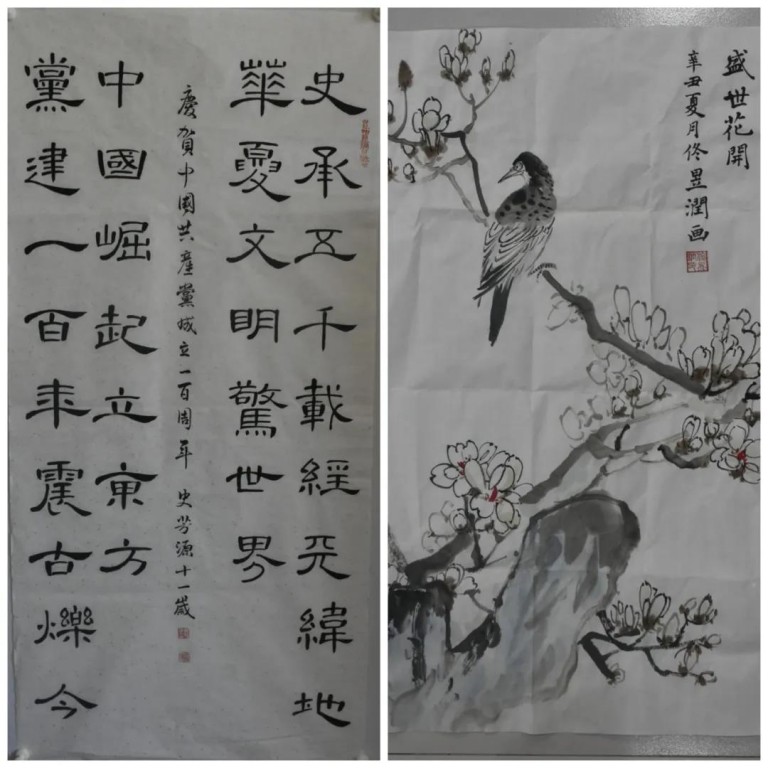 史承五千載經天緯地
華夏文明驚世界
黨建一百年震古爍今
中國崛起立東方
慶賀中国共產黨成立一百周年 史芳源十一歲
盛世花開
辛丑夏月佟昱潤画